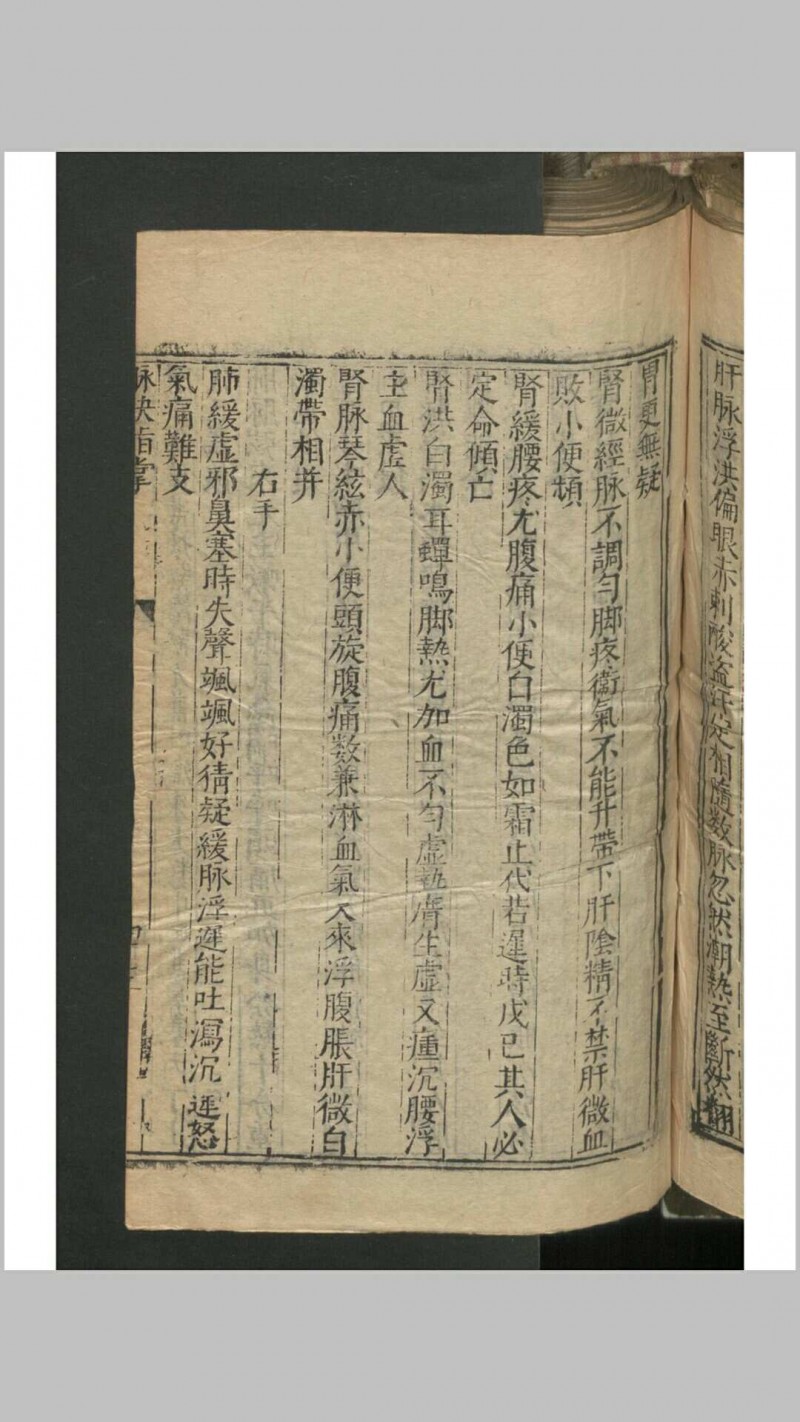 肝脉浮洪偏眼赤刺酸盗汗定相隨数脉忽然潮熱至斷然翻
胃更無疑
腎微經脉不調匀脚疼衛氣不能升帶下肝陰精不禁肝微血
敗小便頻
腎緩腰疼尤腹痛小便白濁色如霜止代若遲時戊已其人必
定命傾亡
腎洪白濁耳蟬鳴脚熱尤加血不匀虛熱瘡生虛又瘇沉腰浮
主血虛人
腎脉琴絃赤小便頭旋腹痛数兼淋血氣又來浮腹脹肝微白
濁帶相并
右手
肺緩虛邪鼻塞時失聲颯颯好猜疑緩脉浮遲能吐瀉沉遲怒
氣痛難支
脉訣指掌